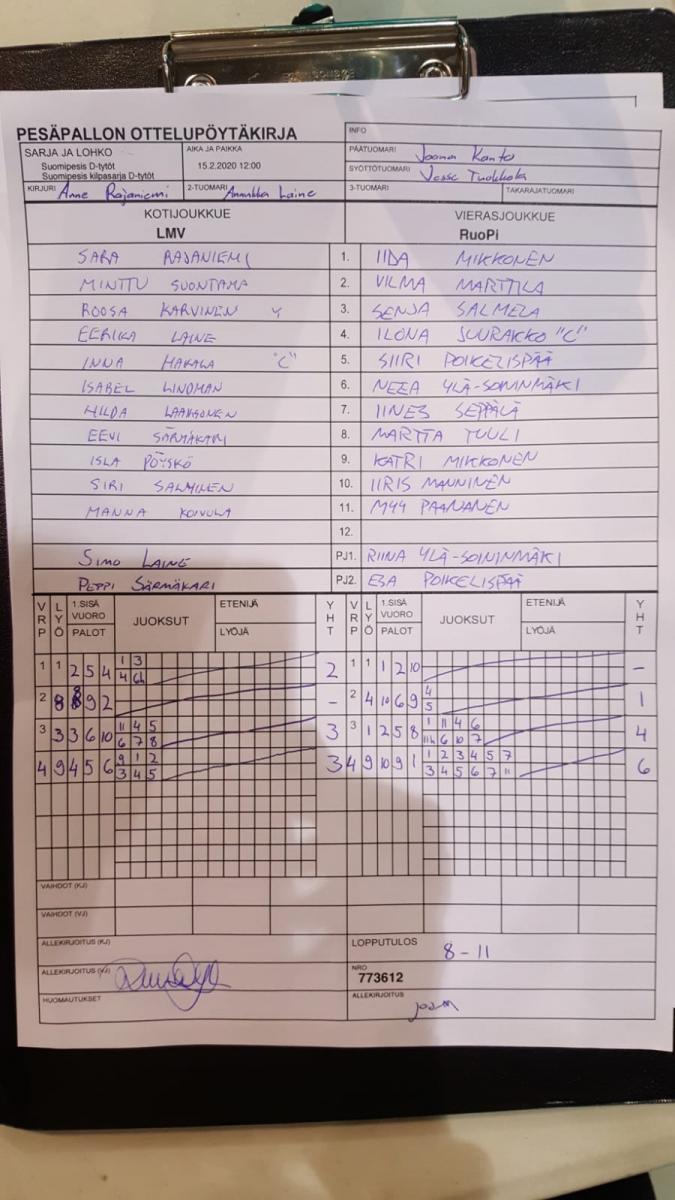 PESÄPALLON OTTELUPÖYTÄKIRJA
INFO
SARJA JA LOHKO
Suomipesis D-tytöt
Suomipesis kilpasarja D-tytöt
AIKA JA PAIKKA
15.2.2020 12:00
PÄÄTUOMARI Joona Kanto
SYÖTTÖTUOMARI Vesse Tuokkola
KIRJURI Anne Rajaniemi
2-TUOMARI Annukka Laine
3-TUOMARI
TAKARAJATUOMARI
KOTIJOUKKUE
LMV
VIERASJOUKKUE
RuoPi
SARA RAJANIEMI 1. IIDA MIKKONEN
MINTTU SUONTAMA 2. VILMA MARTTILA
ROOSA KARVINEN Y 3. SENJA SALMELA
EERIKA LAINE 4. ILONA JUURAKKO "C"
INNA HAKALA "C" 5. SIIRI POIKELISPÄÄ
ISABEL LINDMAN 6. NEEA YLÄ-SOININMÄKI
HILDA LAAKSONEN 7. IINES SEPPÄLÄ
EEVI SÄRMÄKARI 8. MARTTA TUULI
ISLA PÖYSKÖ 9. KATRI MIKKONEN
SIRI SALMINEN 10. IIRIS MANNINEN
MANNA KOIVULA 11. MYY PAANANEN
12.
SIMO LAINE PJ1. RIINA YLÄ-SOININMÄKI
PEPPI SÄRMÄKARI PJ2. ESA POIKELISPÄÄ
VRP LYÖ 1.SISÄ VUORO PALOT JUOKSUT ETENIJÄ LYÖJÄ YHT VRP LYÖ 1.SISÄ VUORO PALOT JUOKSUT ETENIJÄ LYÖJÄ YHT
1 1 2 5 4 1 3 2 1 1 1 2 10 -
2 8 8 9 2 - 2 4 10 6 9 4 1
5
3 3 3 6 10 11 4 5 3 3 1 2 5 8 1 11 4 6 4
6 7 8 6 10 7
4 9 4 5 6 9 1 2 3 4 9 10 9 1 1 2 3 4 5 7 6
3 4 5 3 4 5 6 7 11
VAIHDOT (KJ)
VAIHDOT (VJ)
ALLEKIRJOITUS (KJ)
LOPPUTULOS 8-11
ALLEKIRJOITUS (VJ)
NRO
773612
HUOMAUTUKSET
ALLEKIRJOITUS